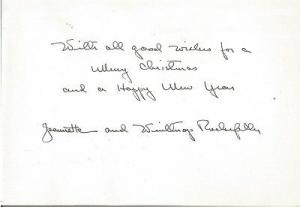 With all good wishes for a
Merry Christmas
and a Happy New Year
Jeannette and Winthrop Rockefeller